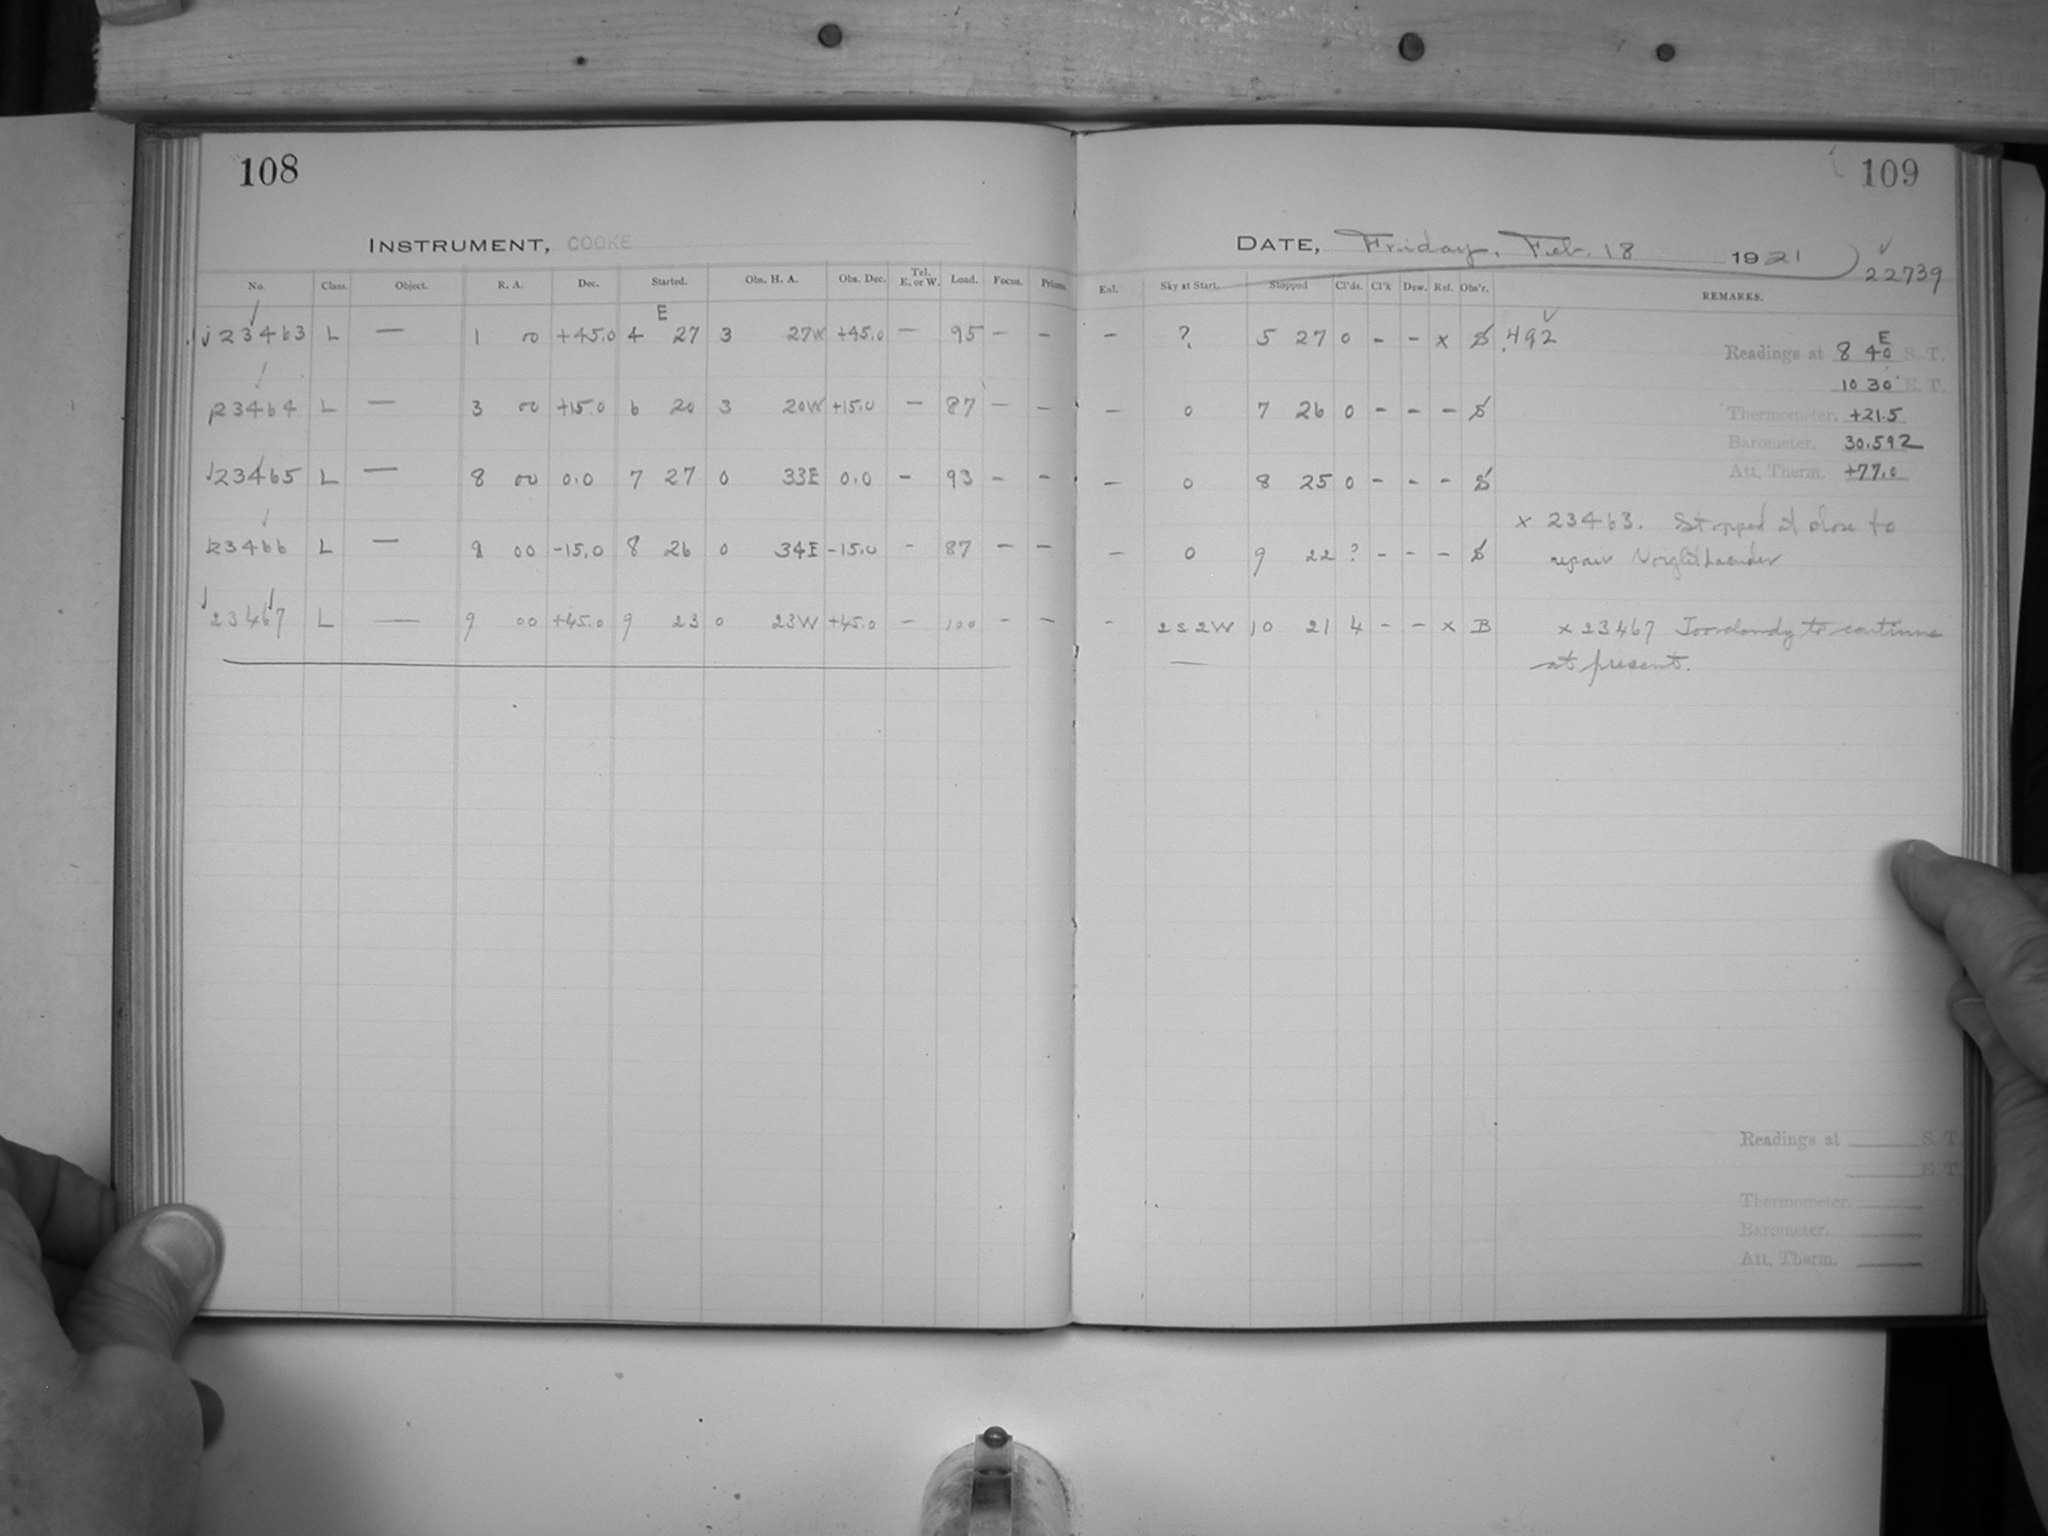 108
INSTRUMENT, COOKE
No. Class. Object. R. A. Dec. Started. Obs. H. A. Obs. Dec. Tel. E. or W. Load. Focus. Prisms.
E
23463 L — 1 00 +45.0 4 27 3 27W +45.0 — 95 – –
23464 L — 3 00 +15.0 6 20 3 20W +15.0 — 87 – –
23465 L — 8 00 0.0 7 27 0 33E 0.0 – 93 – –
23466 L — 9 00 -15.0 8 26 0 34E -15.0 - 87 – –
23467 L — 9 00 +45.0 9 23 0 23W +45.0 – 100 – –
109
DATE, Friday, Feb. 18 1921
22739
Enl. Sky at Start. Stopped Cl'ds. Cl'k Dew. Ref. Obs'r. REMARKS.
– ? 5 27 0 – – x S .492
– 0 7 26 0 – – – S
– 0 8 25 0 – – – S
– 0 9 22 ? – – – S
– 2S2W 10 21 4 – – x B
Readings at 8 40 E S. T.
10 30 E. T.
Thermometer, +21.5
Barometer, 30.592
Att. Therm. +77.0
x 23463. Stopped at close to
repair Voigtlaender
x 23467 Too cloudy to continue
at present.
Readings at S. T.
E. T.
Thermometer.
Barometer.
Att. Therm.